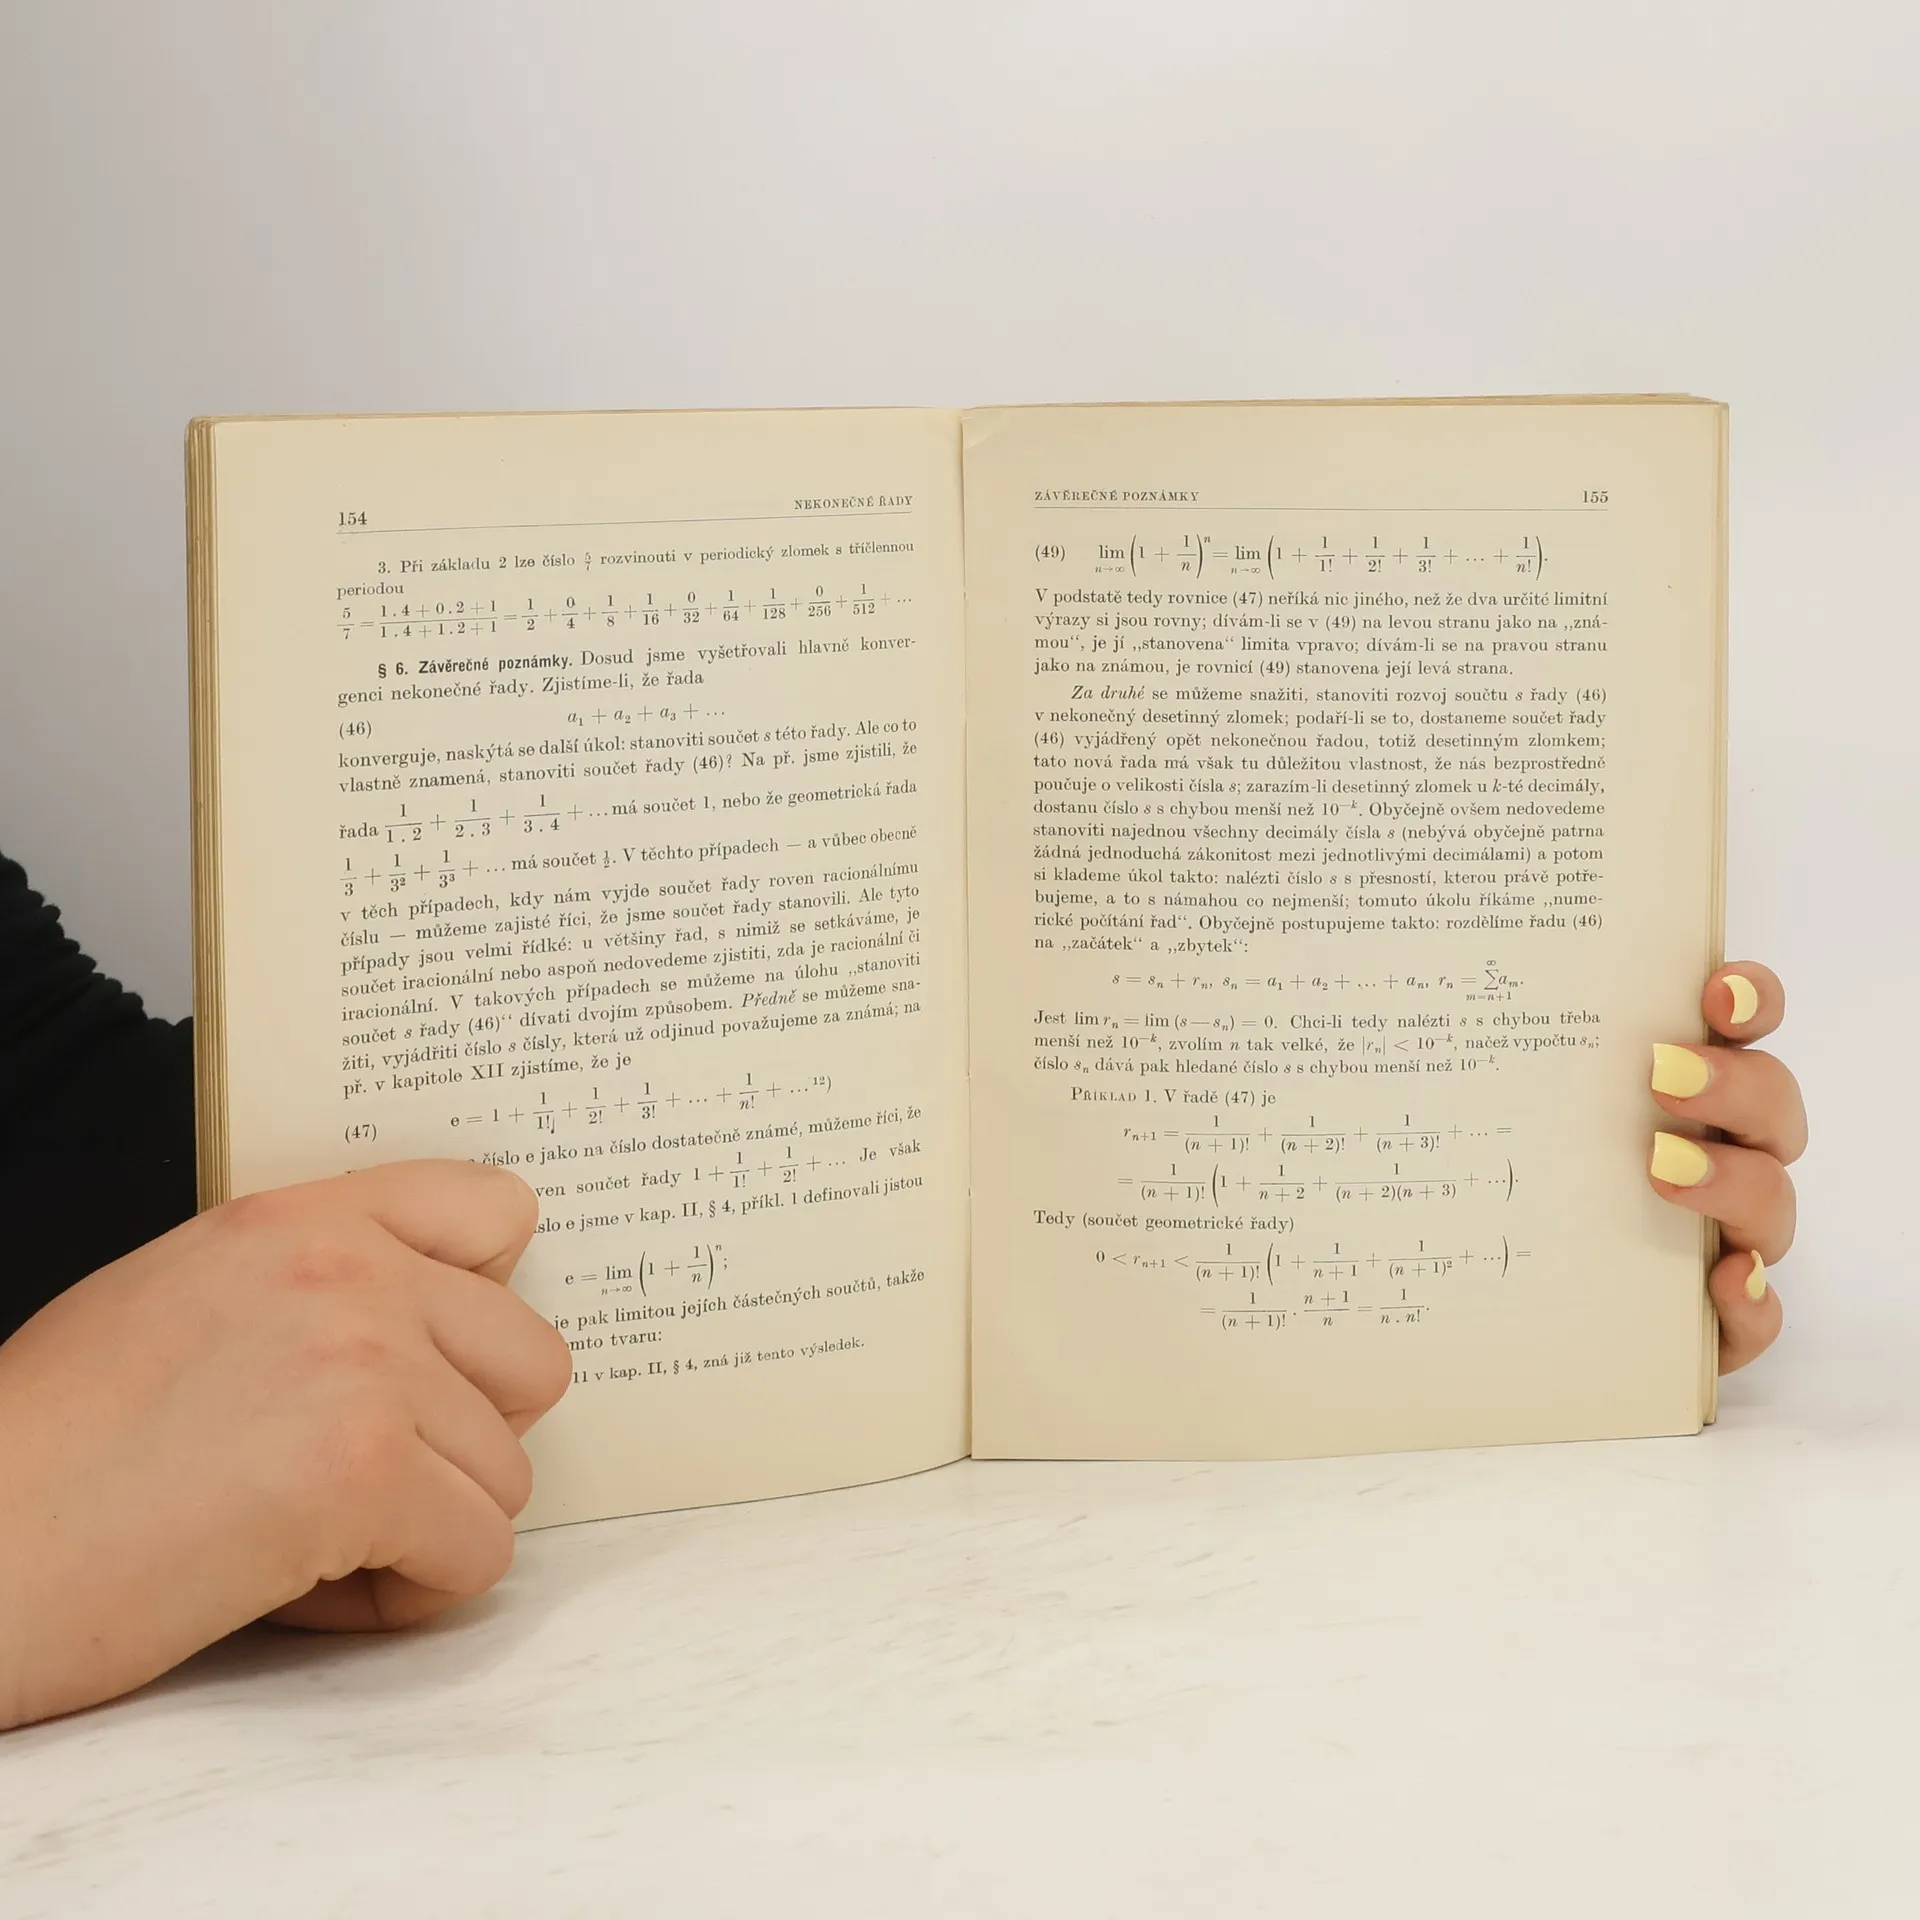 154 NEKONEČNÉ ŘADY
3. Při základu 2 lze číslo 5/7 rozvinouti v periodický zlomek s tříčlennou
periodou
5/7 = (1 . 4 + 0 . 2 + 1)/(1 . 4 + 1 . 2 + 1) = 1/2 + 0/4 + 1/8 + 1/16 + 0/32 + 1/64 + 1/128 + 0/256 + 1/512 + ...
§ 6. Závěrečné poznámky. Dosud jsme vyšetřovali hlavně konver-
genci nekonečné řady. Zjistíme-li, že řada
(46) a₁ + a₂ + a₃ + ...
konverguje, naskýtá se další úkol: stanoviti součet s této řady. Ale co to
vlastně znamená, stanoviti součet řady (46)? Na př. jsme zjistili, že
řada 1/(1 . 2) + 1/(2 . 3) + 1/(3 . 4) + ... má součet 1, nebo že geometrická řada
1/3 + 1/3² + 1/3³ + ... má součet ½. V těchto případech — a vůbec obecně
v těch případech, kdy nám vyjde součet řady roven racionálnímu
číslu — můžeme zajisté říci, že jsme součet řady stanovili. Ale tyto
případy jsou velmi řídké: u většiny řad, s nimiž se setkáváme, je
součet iracionální nebo aspoň nedovedeme zjistiti, zda je racionální či
iracionální. V takových případech se můžeme na úlohu „stanoviti
součet s řady (46)“ dívati dvojím způsobem. Předně se můžeme sna-
žiti, vyjádřiti číslo s čísly, která už odjinud považujeme za známá; na
př. v kapitole XII zjistíme, že je
(47) e = 1 + 1/1! + 1/2! + 1/3! + ... + 1/n! + ... ¹²)
číslo e jako na číslo dostatečně známé, můžeme říci, že
součet řady 1 + 1/1! + 1/2! + ... Je však
e jsme v kap. II, § 4, příkl. 1 definovali jistou
e = lim n→∞ (1 + 1/n)ⁿ;
je pak limitou jejích částečných součtů, takže
tvaru:
11 v kap. II, § 4, zná již tento výsledek.
ZÁVĚREČNÉ POZNÁMKY 155
(49) lim n→∞ (1 + 1/n)ⁿ = lim n→∞ (1 + 1/1! + 1/2! + 1/3! + ... + 1/n!).
V podstatě tedy rovnice (47) neříká nic jiného, než že dva určité limitní
výrazy si jsou rovny; dívám-li se v (49) na levou stranu jako na „zná-
mou“, je jí „stanovena“ limita vpravo; dívám-li se na pravou stranu
jako na známou, je rovnicí (49) stanovena její levá strana.
Za druhé se můžeme snažiti, stanoviti rozvoj součtu s řady (46)
v nekonečný desetinný zlomek; podaří-li se to, dostaneme součet řady
(46) vyjádřený opět nekonečnou řadou, totiž desetinným zlomkem;
tato nová řada má však tu důležitou vlastnost, že nás bezprostředně
poučuje o velikosti čísla s; zarazím-li desetinný zlomek u k-té decimály,
dostanu číslo s s chybou menší než 10⁻ᵏ. Obyčejně ovšem nedovedeme
stanoviti najednou všechny decimály čísla s (nebývá obyčejně patrna
žádná jednoduchá zákonitost mezi jednotlivými decimálami) a potom
si klademe úkol takto: nalézti číslo s s přesností, kterou právě potře-
bujeme, a to s námahou co nejmenší; tomuto úkolu říkáme „nume-
rické počítání řad“. Obyčejně postupujeme takto: rozdělíme řadu (46)
na „začátek“ a „zbytek“:
s = sₙ + rₙ, sₙ = a₁ + a₂ + ... + aₙ, rₙ = ∞ ∑ m=n+1 aₘ.
Jest lim rₙ = lim (s — sₙ) = 0. Chci-li tedy nalézti s s chybou třeba
menší než 10⁻ᵏ, zvolím n tak velké, že |rₙ| < 10⁻ᵏ, načež vypočtu sₙ;
číslo sₙ dává pak hledané číslo s s chybou menší než 10⁻ᵏ.
PŘÍKLAD 1. V řadě (47) je
rₙ₊₁ = 1/(n + 1)! + 1/(n + 2)! + 1/(n + 3)! + ... =
= 1/(n + 1)! (1 + 1/(n + 2) + 1/((n + 2)(n + 3)) + ...).
Tedy (součet geometrické řady)
0 < rₙ₊₁ < 1/(n + 1)! (1 + 1/(n + 1) + 1/(n + 1)² + ...) =
= 1/(n + 1)! . (n + 1)/n = 1/(n . n!).